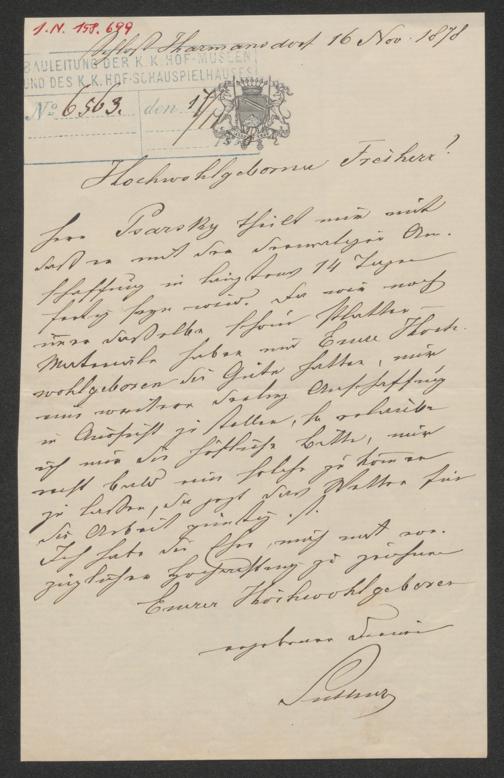 I.N. 158.699
Schloß Harmansdorf 16 Nov. 1878
BAULEITUNG DER K.K. HOF-MUSEEN
UND DES K.K. HOF-SCHAUSPIELHAUSES
No 6563. den 17/11
Hochwohlgeborner Freiherr!
Herr Psarsky theilt mir mit
daß er mit der An-
schaffung in längstens 14 Tagen
fertig seyn wird. Da wir noch
immer dasselbe schöne Platten-
Materiale haben und Euer Hoch-
wohlgeboren die Güte hatten, mir
eine weitere Anschaffung
in Aussicht zu stellen, so erlaube
ich mir die höfliche Bitte, mir
recht bald eine solche zu kommen
zu lassen, da jetzt das Wetter für
die Arbeit günstig ist.
Ich habe die Ehre, mich mit vor-
züglicher Hochachtung zu zeichnen
Eurer Hochwohlgeboren
ergebener Diener
Suttner